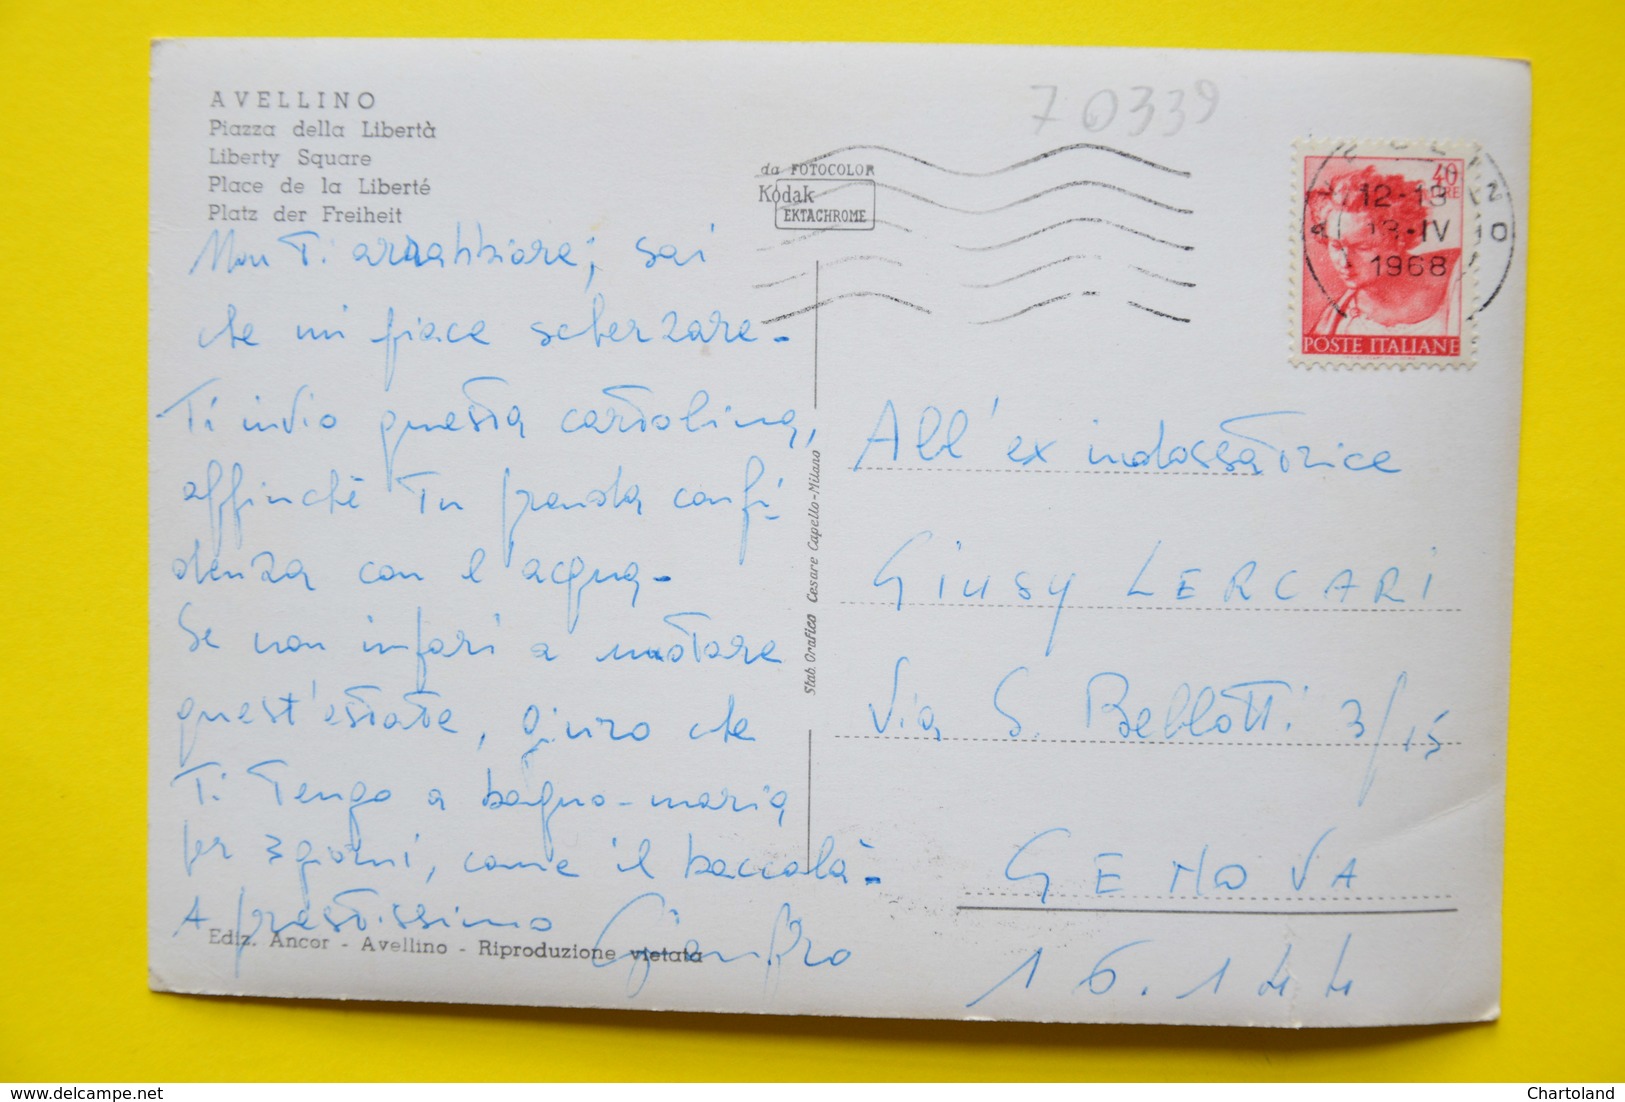 AVELLINO
Piazza della Libertà
Liberty Square
Place de la Liberté
Platz der Freiheit
70339
da FOTOCOLOR
Kodak
EKTACHROME
40
LIRE
12-13
IV
1968
POSTE ITALIANE
Non Ti arrabbiare, sai
che mi piace scherzare.
Ti invio questa cartolina,
affinchè Tu prenda confi-
denza con l'acqua.
Se non impari a nuotare
quest'estate, giuro che
Ti Tengo a bagno-maria
per 3 giorni, come il baccalà.
A prestissimo
Stab. Grafico Cesare Capello-Milano
All'ex indossatrice
Giusy LERCARI
Via G. Bellotti 3/15
GENOVA
16.144
Ediz. Ancor - Avellino - Riproduzione vietata
delcampe.net
Chartoland